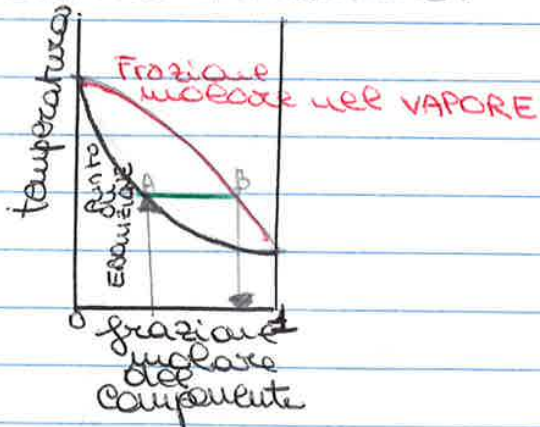 temperatura
Frazione
molare nel VAPORE
Punto
di
EBOLLIZIONE
A
B
0
1
frazione
molare
del
componente